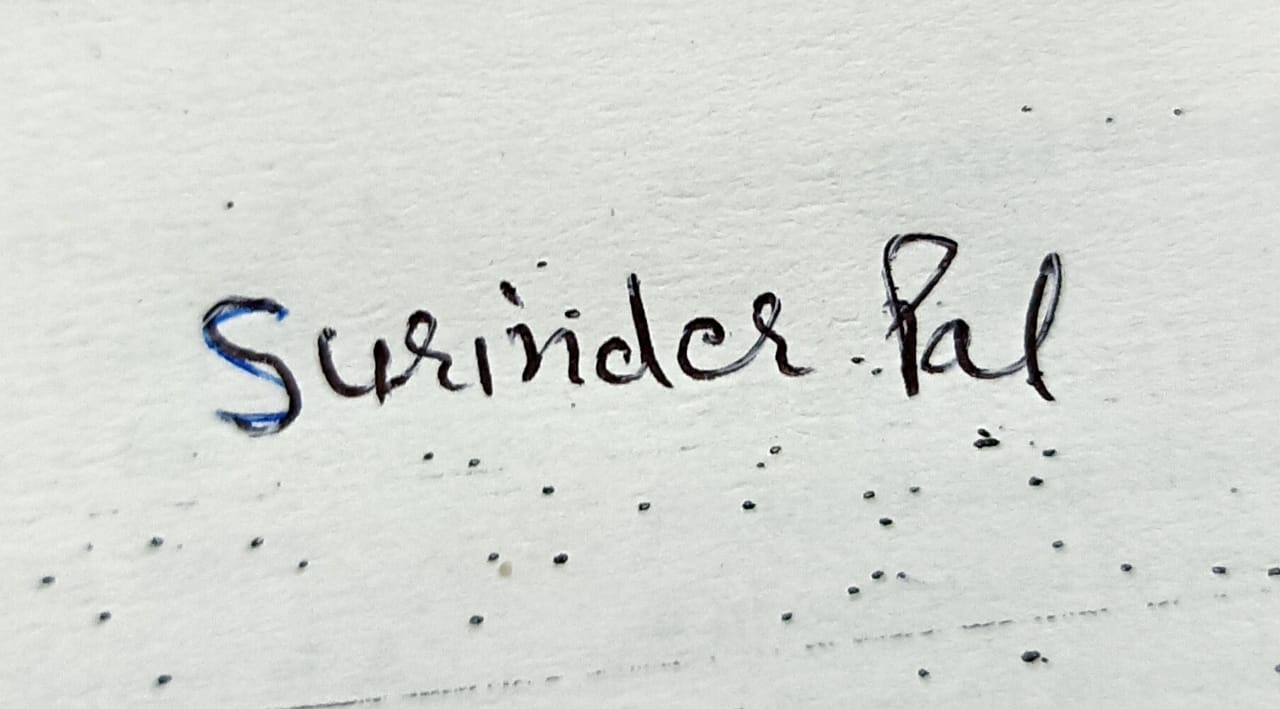 Surinder Pal